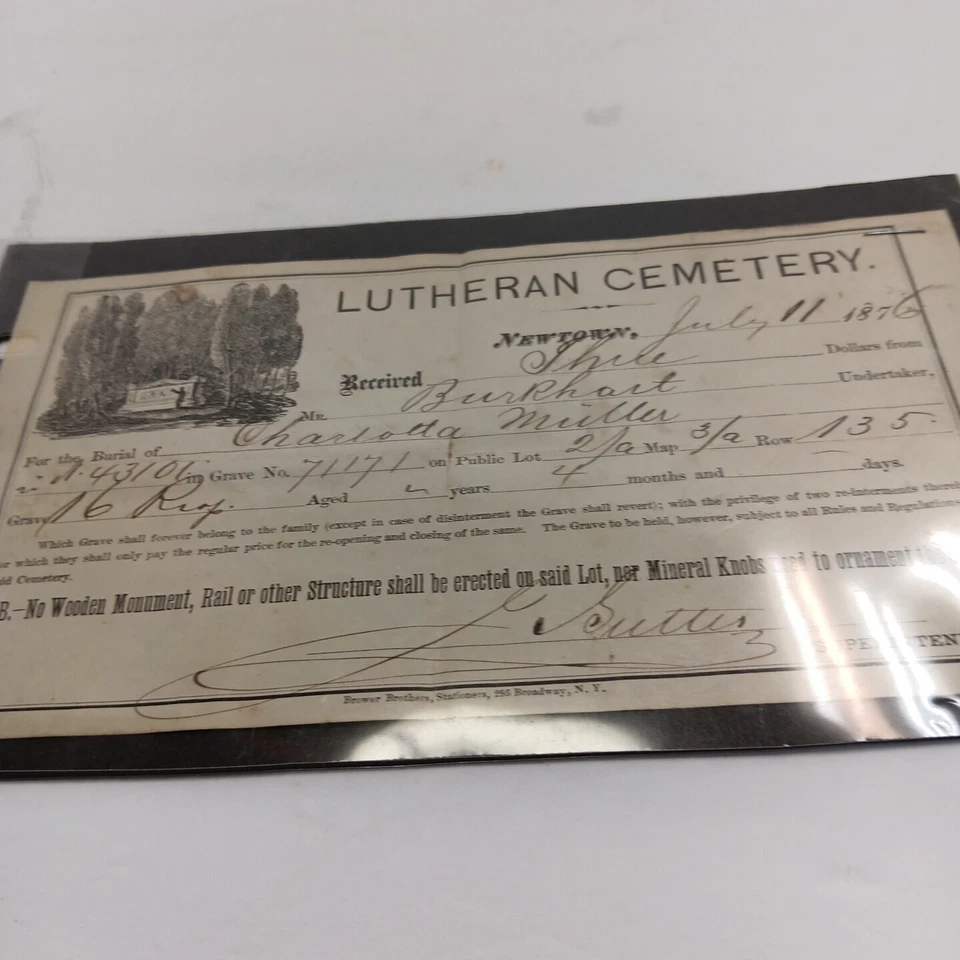 LUTHERAN CEMETERY.
NEWTOWN, July 11 1876
Received Three Dollars from
Mr. Burkhart Undertaker,
For the Burial of Charlotta Müller
in Grave No. 71171 on Public Lot 2/a Map 3/a Row 135
Grave 16 Reg. Aged years 4 months and days.
Which Grave shall forever belong to the family (except in case of disinterment the Grave shall revert); with the privilege of two re-interments
for which they shall only pay the regular price for the re-opening and closing of the same. The Grave to be held, however, subject to all Rules and Regulations
Cemetery.
B.—No Wooden Monument, Rail or other Structure shall be erected on said Lot, nor Mineral Knobs used to ornament
Brower Brothers, Stationers, 295 Broadway, N. Y.